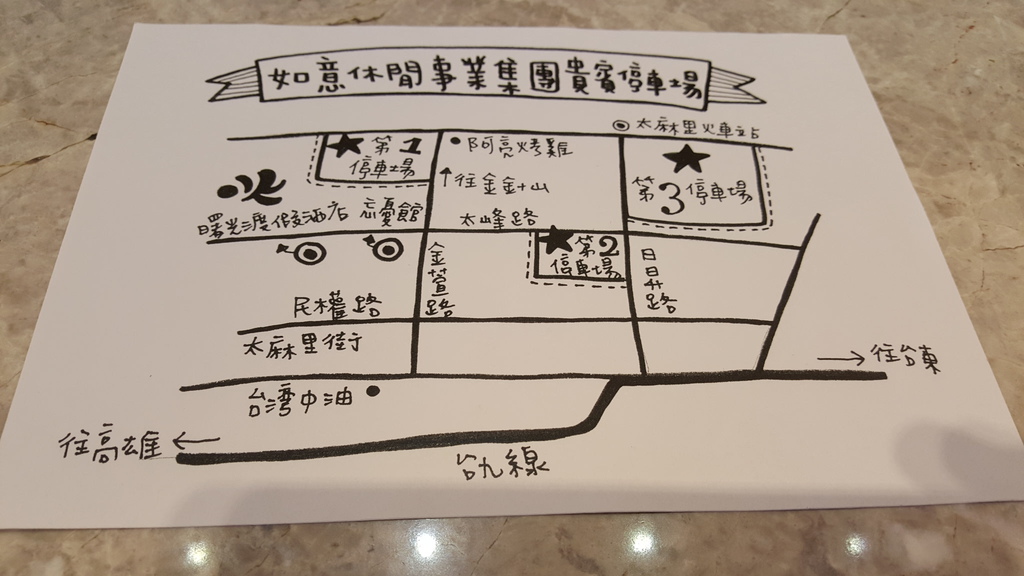 如意休閒事業集團貴賓停車場
太麻里火車站
第1
停車場
阿亮烤雞
往金針山
第3停車場
曙光渡假酒店
忘憂館
太峰路
第2
停車場
金萱路
日昇路
民權路
太麻里街
台灣中油
往台東
往高雄
台九線